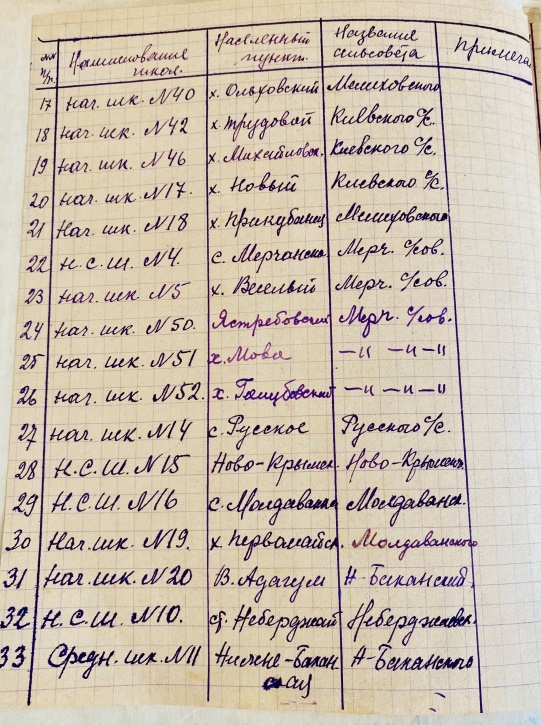 №№ п/п. Наименование школ. Населенный пункт. Название сельсовета Примеча
17 Нач. шк. N40 х. Ольховский Мелиховского
18 Нач. шк. N42 х. Трудовой Киевского с/с.
19 Нач. шк. N46 х. Михайловск. Киевского с/с.
20 Нач. шк. N17. х. Новый Киевского с/с.
21 Нач. шк. N18 х. Прикубанец Мелиховского
22 Н.С.Ш. N4. с. Мерчанско Мерч. с/сов.
23 Нач. шк. N5 х. Веселый Мерч. с/сов.
24 Нач. шк. N50. Ястребовский Мерч. с/сов.
25 Нач. шк. N51 х. Мова —"— —"
26 Нач. шк. N52. х. Голубовский —"— —"
27 Нач. шк. N14 с. Русское Русского с/с.
28 Н.С.Ш. N15 Ново-Крымск. Ново-Крымск.
29 Н.С.Ш. N16 с. Молдаванка Молдаванск.
30 Нач. шк. N19. х. Первомайск. Молдаванского
31 Нач. шк. N20 В. Адагум Н-Баканский.
32 Н.С.Ш. N10. ст. Неберджай Неберджаевск.
33 Средн. шк. N11 Нижне-Бакан Н-Баканского
ская